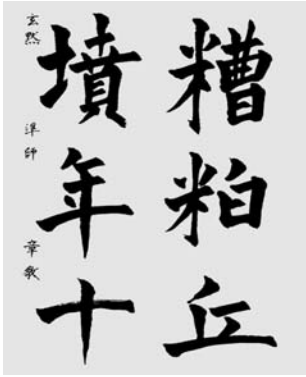 糟粕丘
墳年十
玄然 準師 章敬